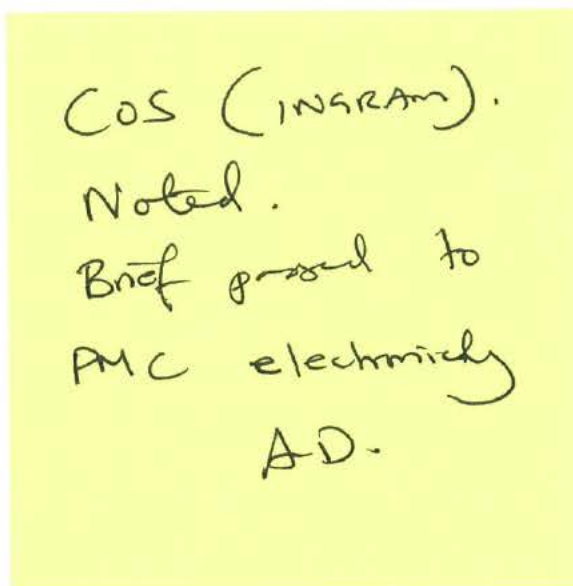 COS (INGRAM).
Noted.
Brief passed to
PMC electronicly
AD.